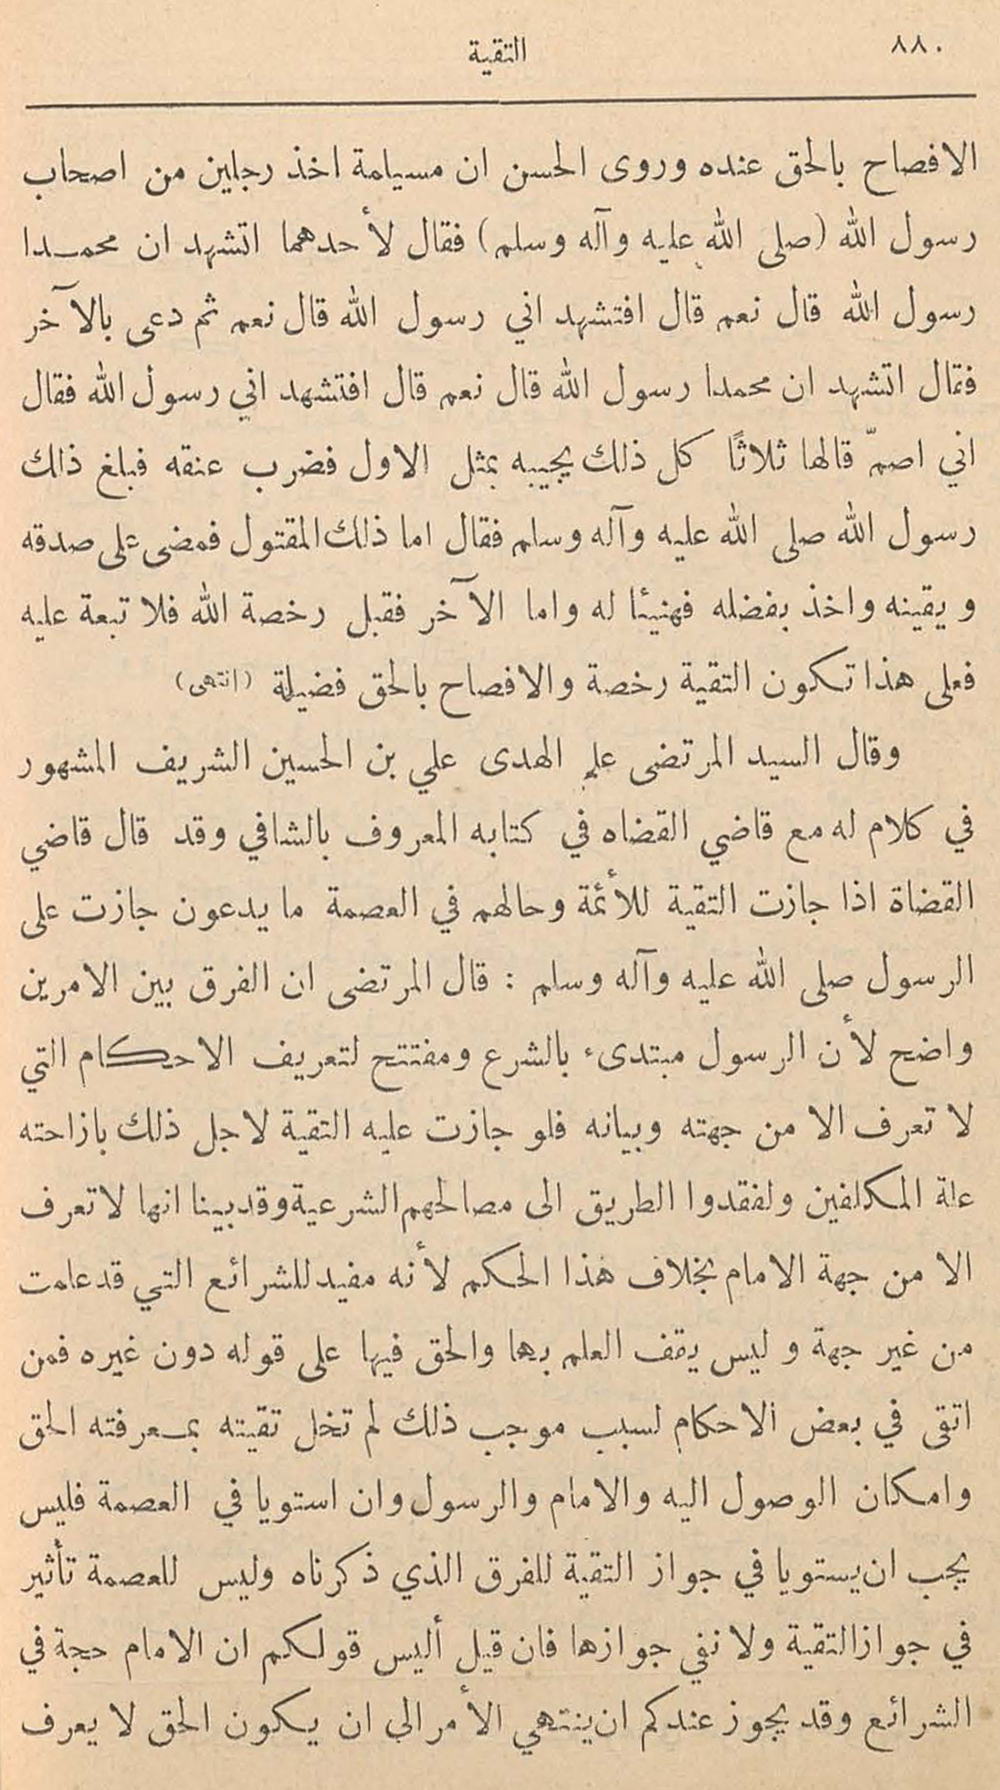 ٨٨٠ التقية
الافصاح بالحق عنده وروى الحسن ان مسيلمة اخذ رجلين من اصحاب
رسول الله (صلى الله عليه وآله وسلم) فقال لأحدهما اتشهد ان محمدا
رسول الله قال نعم قال افتشهد اني رسول الله قال نعم ثم دعى بالآخر
فقال اتشهد ان محمدا رسول الله قال نعم قال افتشهد اني رسول الله فقال
اني اصمّ قالها ثلاثًا كل ذلك يجيبه بمثل الاول فضرب عنقه فبلغ ذلك
رسول الله صلى الله عليه وآله وسلم فقال اما ذلك المقتول فمضى على صدقه
و يقينه واخذ بفضله فهنيئا له واما الآخر فقبل رخصة الله فلا تبعة عليه
فعلى هذا تكون التقية رخصة والافصاح بالحق فضيلة (انتهى)
وقال السيد المرتضى علم الهدى علي بن الحسين الشريف المشهور
في كلام له مع قاضي القضاه في كتابه المعروف بالشافي وقد قال قاضي
القضاة اذا جازت التقية للأئمة وحالهم في العصمة ما يدعون جازت على
الرسول صلى الله عليه وآله وسلم : قال المرتضى ان الفرق بين الامرين
واضح لأن الرسول مبتدىء بالشرع ومفتتح لتعريف الاحكام التي
لا تعرف الا من جهته وبيانه فلو جازت عليه التقية لاجل ذلك بازاحته
علة المكلفين ولفقدوا الطريق الى مصالحهم الشرعية وقد بينا انها لا تعرف
الا من جهة الامام بخلاف هذا الحكم لأنه مفيد للشرائع التي قد علمت
من غير جهة و ليس يقف العلم بها والحق فيها على قوله دون غيره فمن
اتقى في بعض الاحكام لسبب موجب ذلك لم تخل تقيته بمعرفته الحق
وامكان الوصول اليه والامام والرسول وان استويا في العصمة فليس
يجب ان يستويا في جواز التقية للفرق الذي ذكرناه وليس للعصمة تأثير
في جواز التقية ولا نفي جوازها فان قيل أليس قولكم ان الامام حجة في
الشرائع وقد يجوز عندكم ان ينتهي الأمر الى ان يكون الحق لا يعرف